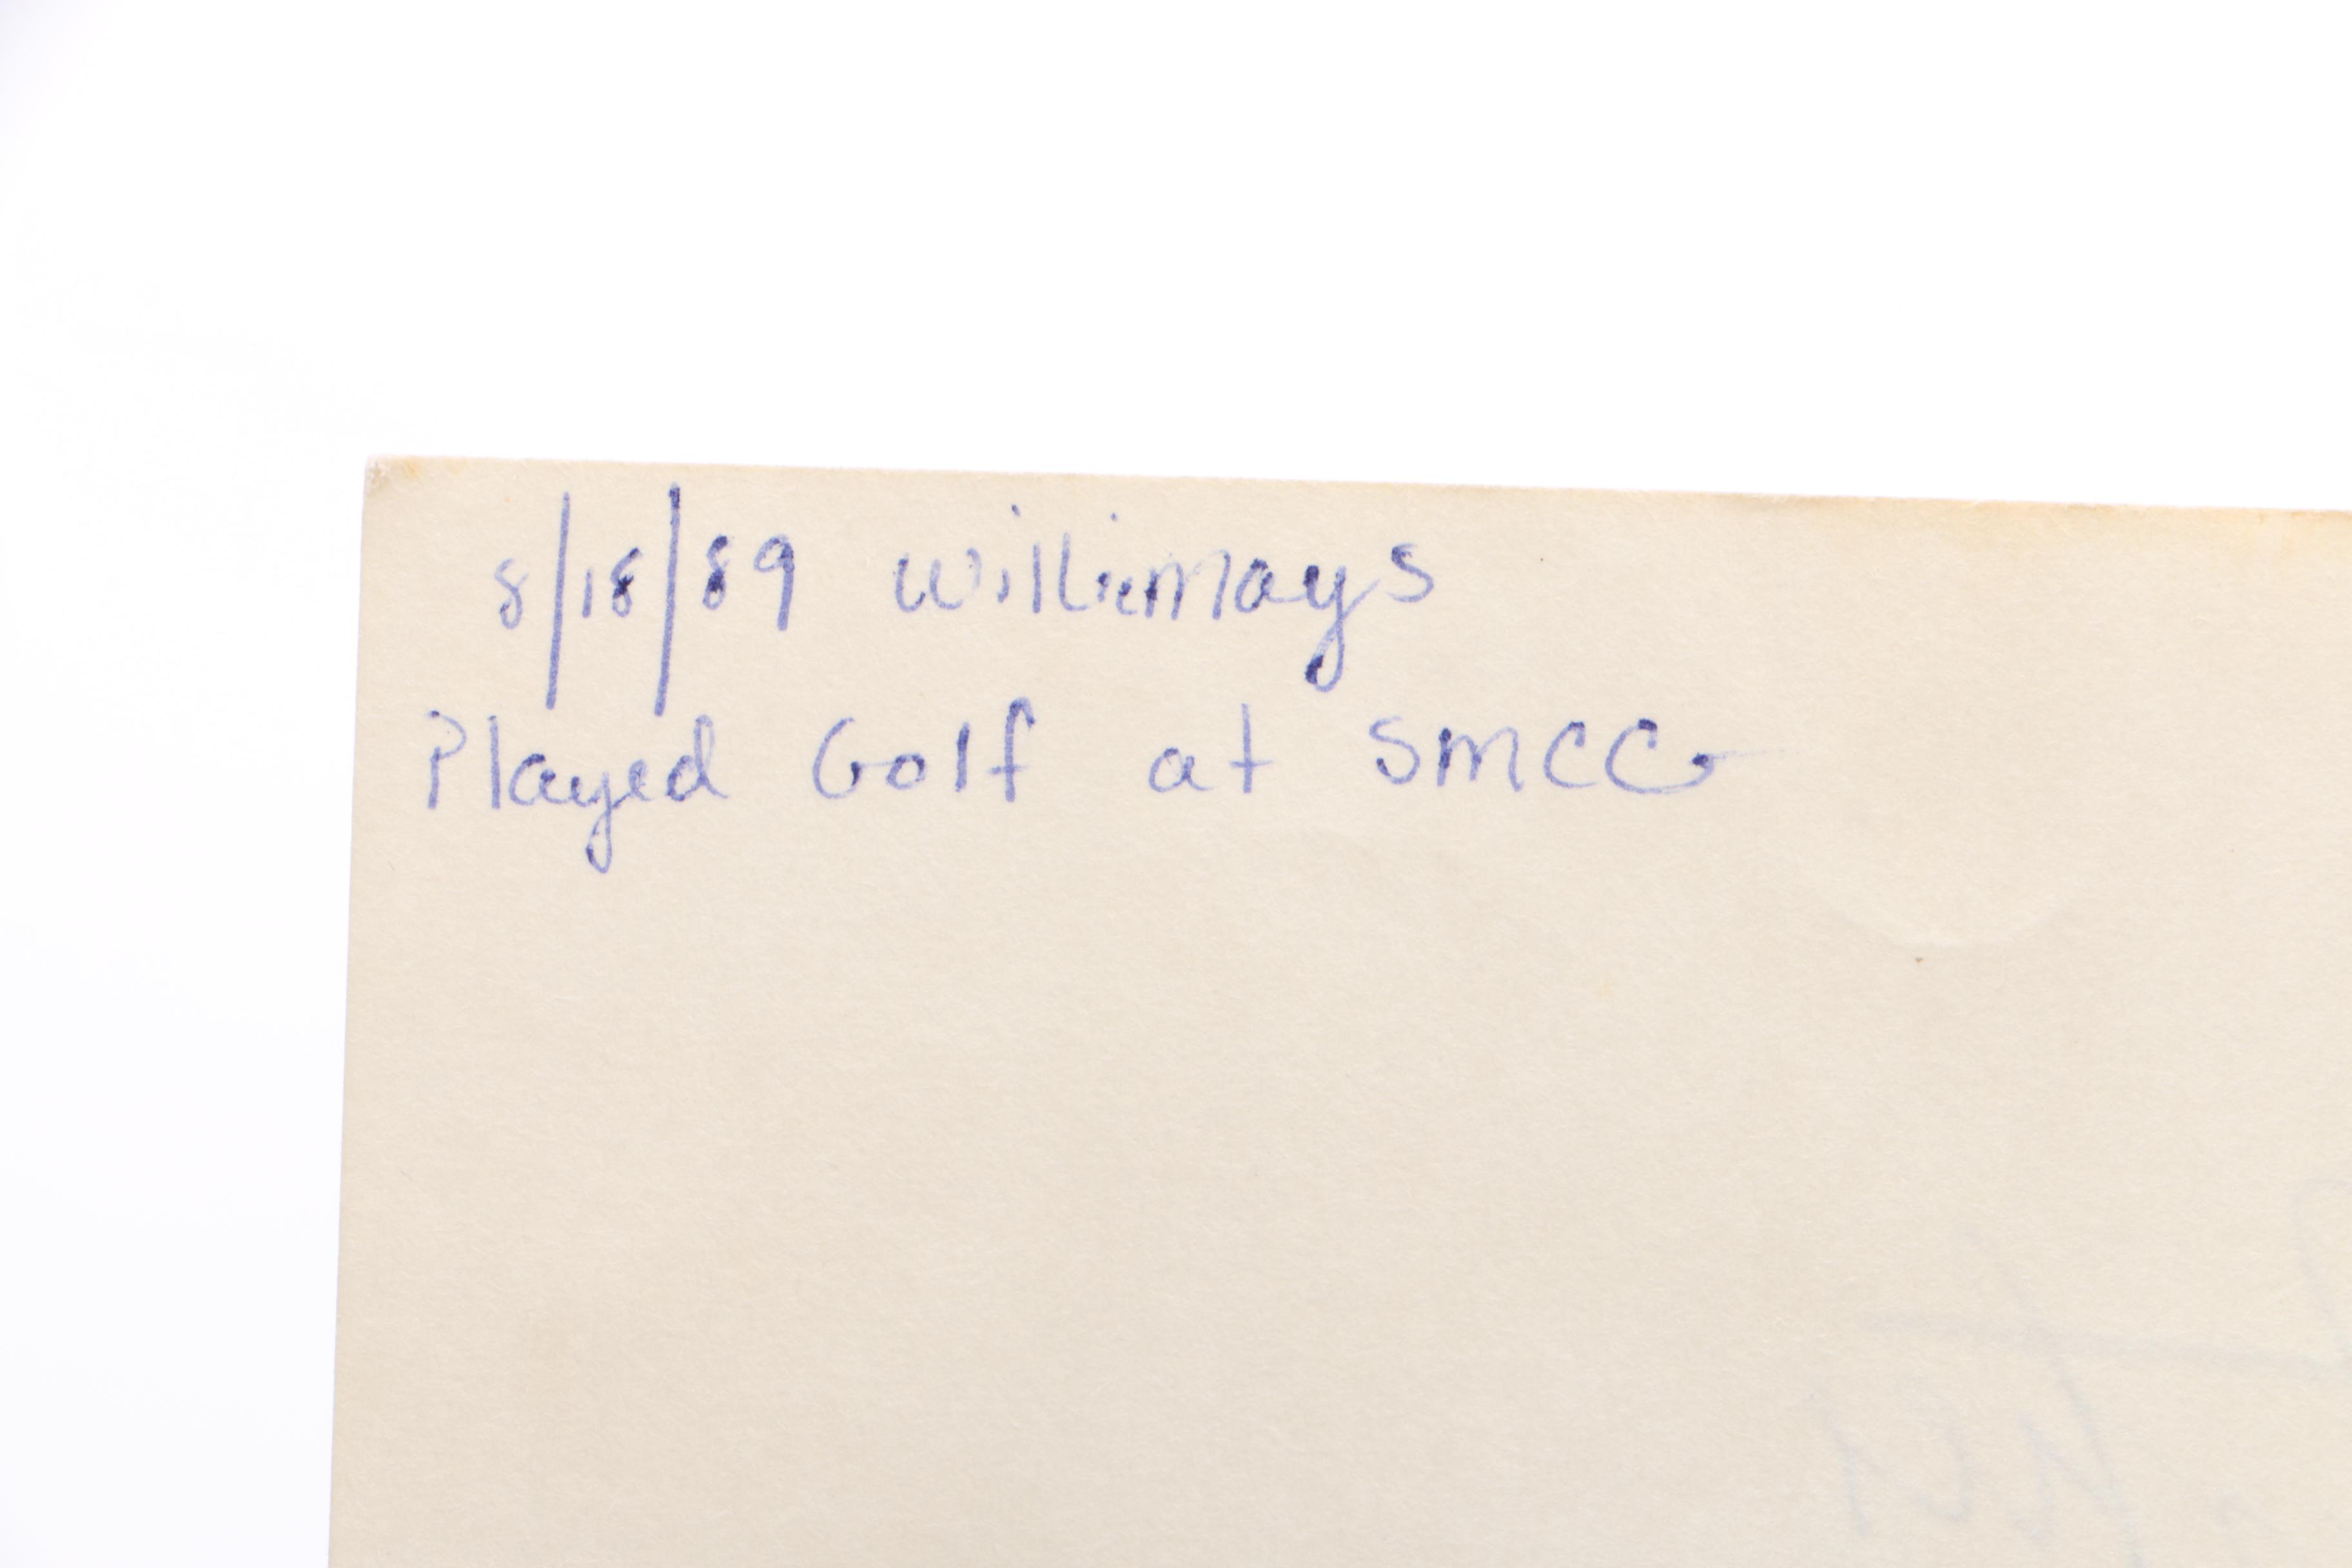 8/18/89 Willie Mays
Played Golf at SMCC